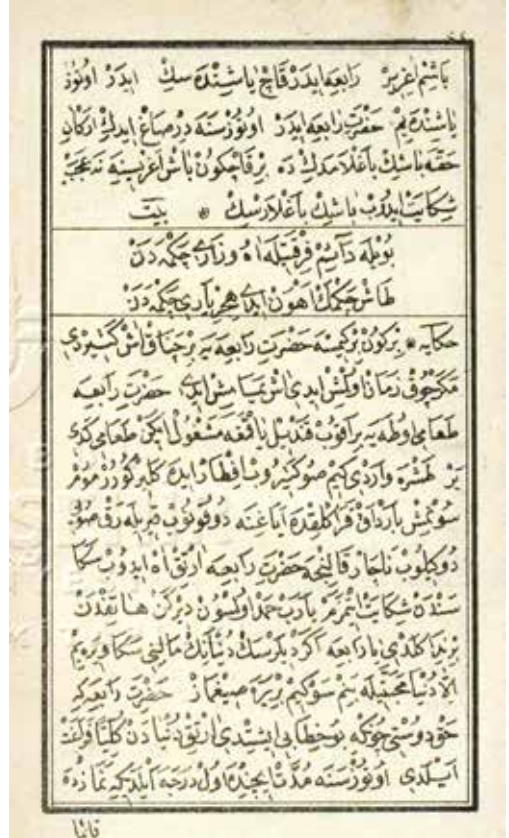 باشم اغریر رابعه ایدر قاچ یاشنده سك ایدر اوتوز
یاشنده یم حضرت رابعه ایدر اوتوز سنه در صاغ ایدك اركان
حقه باشك باغلامدك ده بر قاچ كون باش اغریسینه نه عجب
شكایت ایدوب باشك باغلارسك * بیت
بویله دائم فرقتیله اه و زاری چكمدن
طاش چكمك اهون ایدی هجر یاری چكمدن
حكایه * بر كون بر كیمسه حضرت رابعه یه بر چناق اش كتیردی
مكر چوق زمان اولمش ایدی اش یمامش ایدی حضرت رابعه
طعامی اوطه یه براقوب قندیل یاقمغه مشغول ایكن طعامی كدی
یر طشره واردی كیم صو كتیروب افطار ایده كلیر كورر موم
سوینمش بارداق قراكلقده ایاغنه دوقونوب قیریله رق صویی
دوكیلوب ناچار قالنجه حضرت رابعه ارتق اه ایدوب سكا
سندن شكایت اتمزم یارب حمد اولسون دیركن هاتفدن
بر ندا كلدی یا رابعه اكر دیلرسك دنیانك مالنی سكا ویره یم
الا دنیا محبتیله بنم سوكیم بر یره صیغماز حضرت رابعه كه
حق دوستی چونكه بو خطابی ایشتدی ارتق دنیادن كلیا فراغت
ایلدی اوتوز سنه مدت ایچنده اول درجه ایلدی كه نمازده